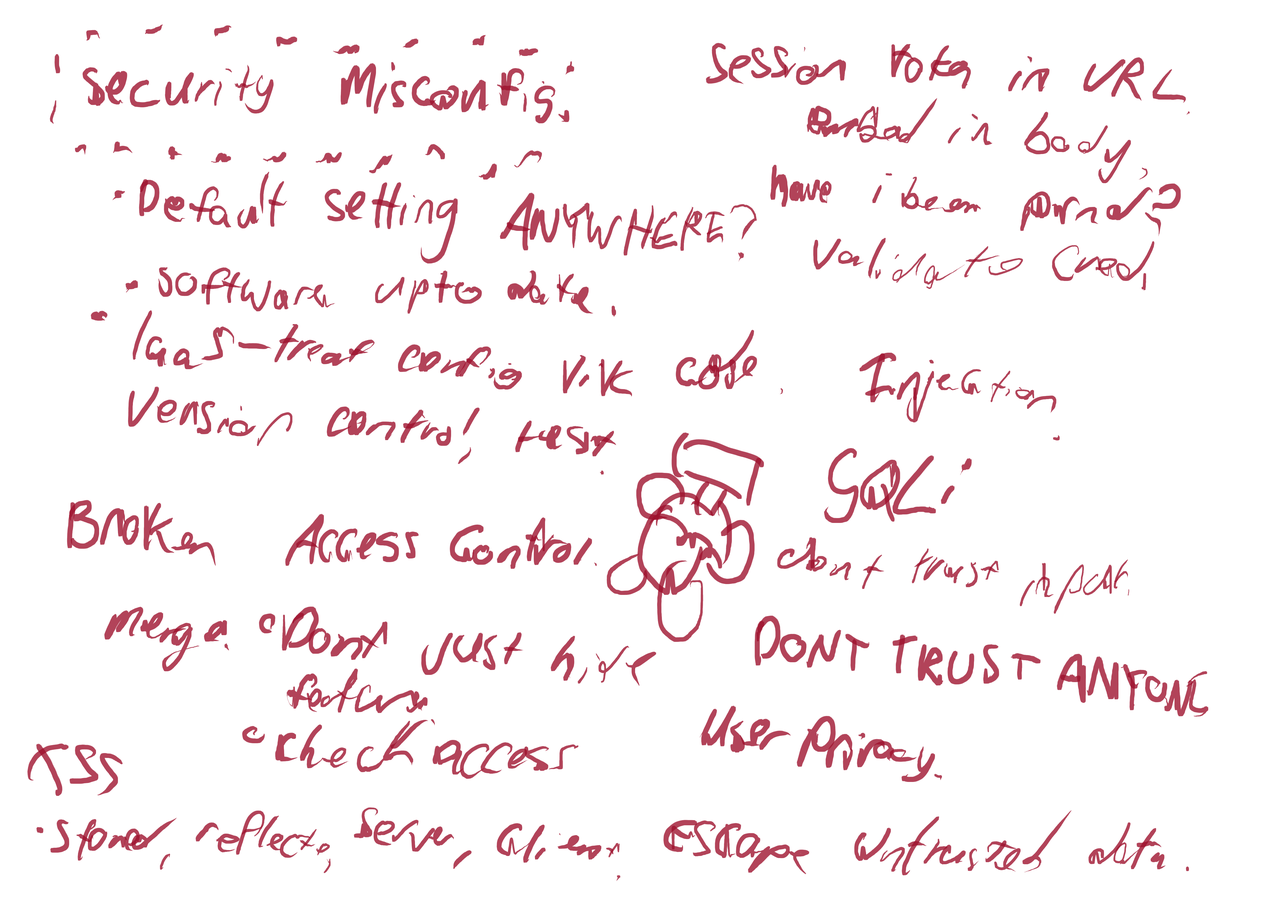 Security Misconfig.
• Default setting ANYWHERE?
• software upto date.
• IaaS-treat config
code.
Version control, test.
Session token in URL.
in body,
have i been pwned?
Validate Cred.
Injection.
SQLi
dont trust input.
DONT TRUST ANYONE
Broken Access Control.
merge. Dont Just hide
feature
check access
User Privacy.
XSS
• Stored, reflecte, Server, Client. escape untrusted data.